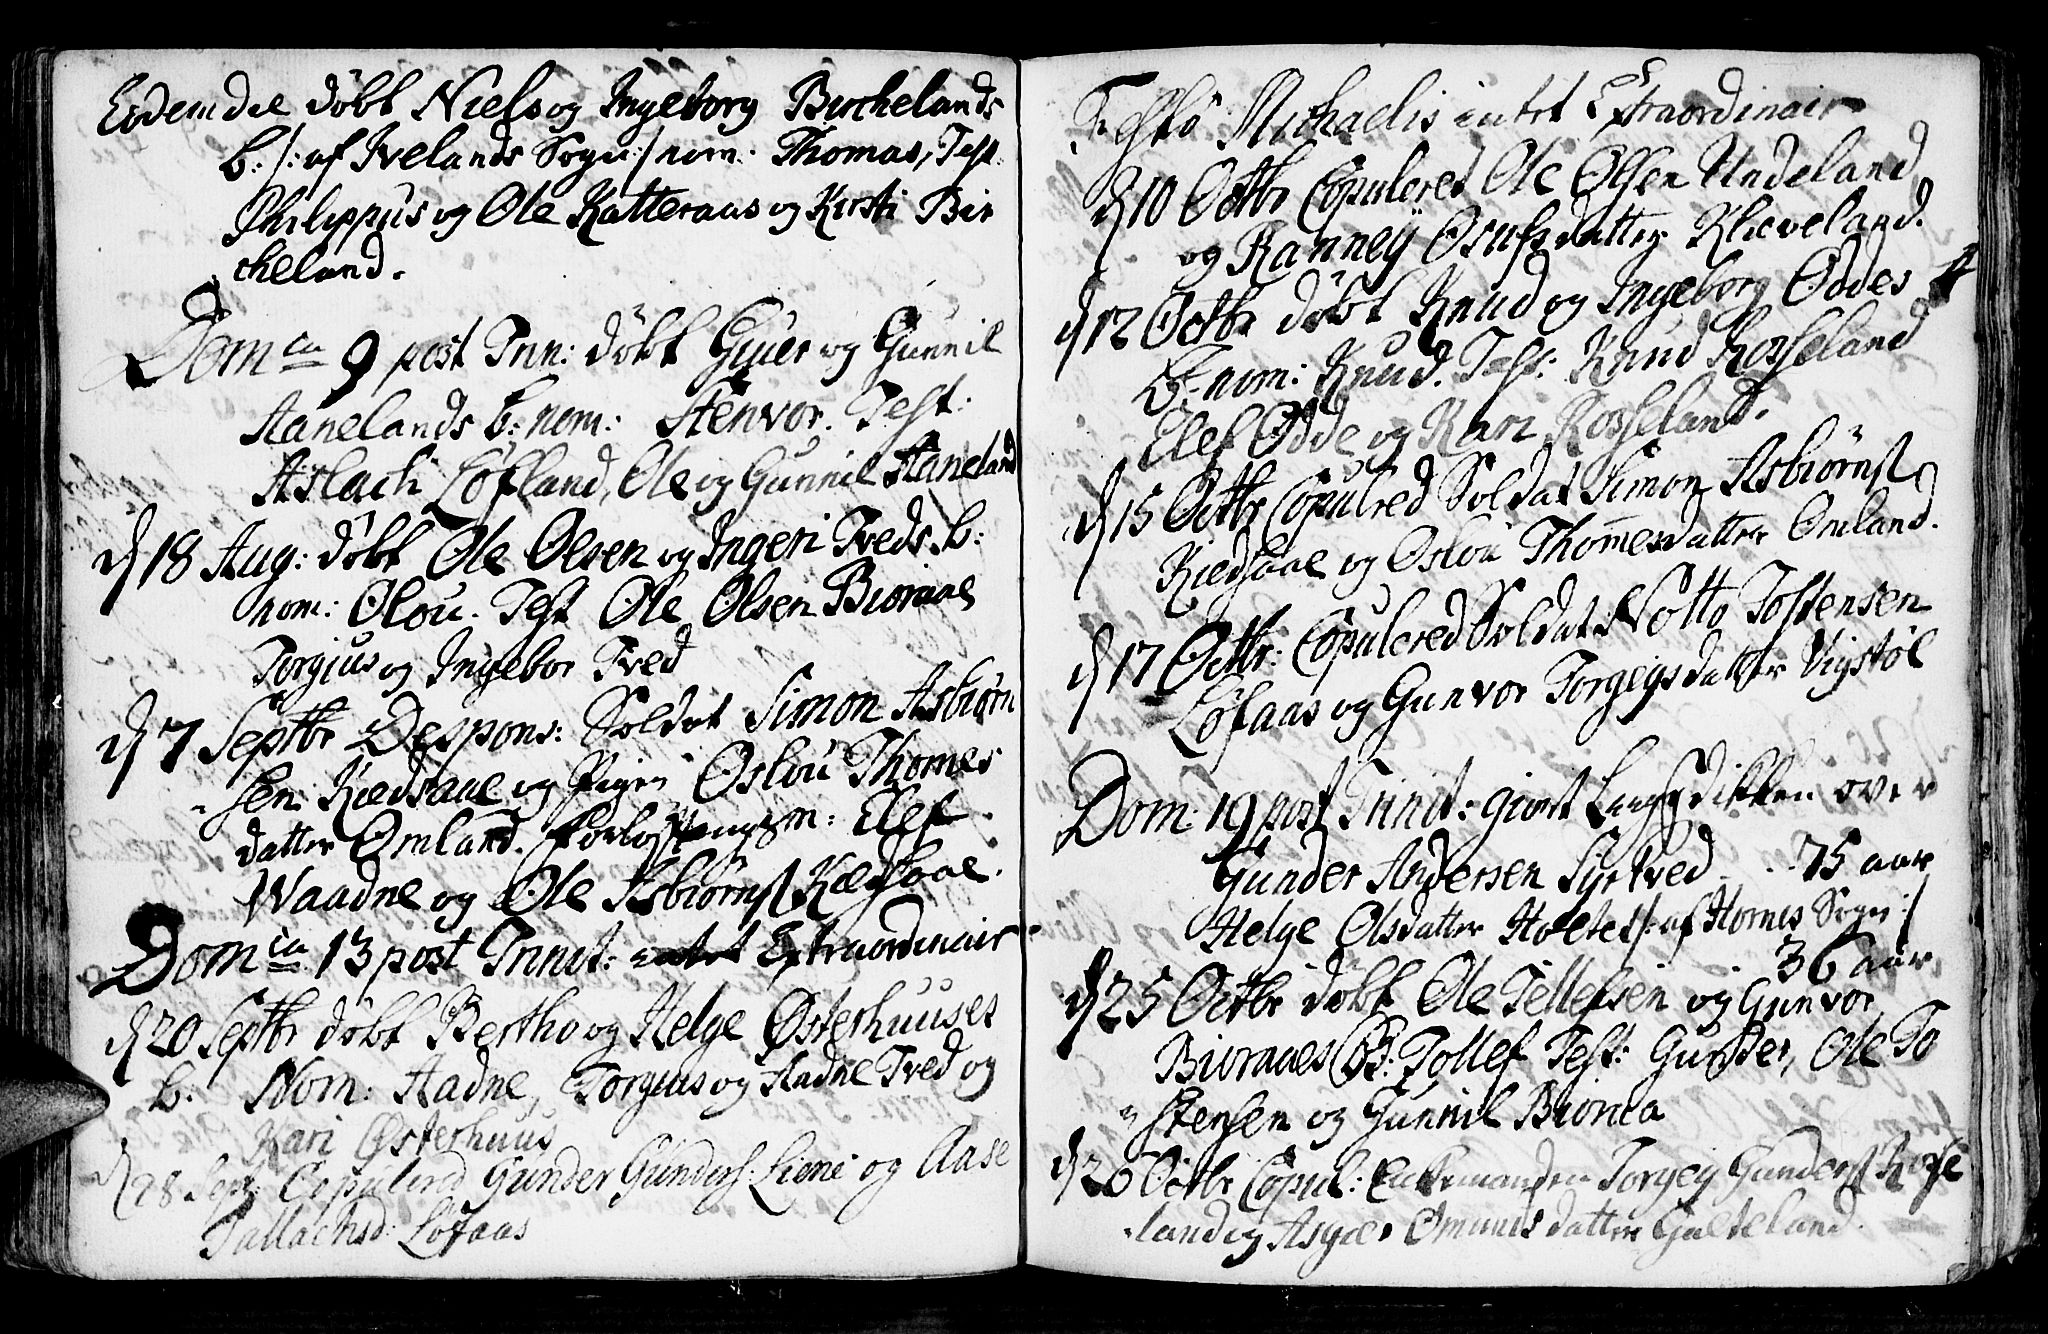 Eodem die døbt Niels og Ingeborg Birchelands
b: /: af Ivelands Sogn :/ nom: Thomas, Test:
Philippus og Ole Katteraas og Kirsti Bir
cheland.
Dom ca 9 post Trin: døbt Giuer og Gunnil
Aanelands b: nom: Stenvor. Test:
Aslach Løfland, Ole og Gunnil Aaneland
d 18 Aug: døbt Ole Olsen og Ingeri Treds b:
nom: Olou. Test Ole Olsen Bioraae
Torgius og Ingebor Tred
d 7 Septbr Despons: Soldat Simon Asbiørn
sen Kiedsaae og Pigen Oslou Thomes
datter Omland. Forløftningsm: Elef
Waadne og Ole Asbiørns Kiedsaae.
Dom ca 13 post Trinit: intet Extraordinair
d 20 Septbr døbt Bertho og Helge Østerhuuses
b: Nom: Aadne, Torgius og Aadne Tved og
Kari Østerhuus
d 28 Sept: Copulered Gunder Gunders: Liene og Aase
Tallachsd: Løfaas
Festo Michaelis intet Extraordinair
d 10 Octbr Copuleret Ole Olsen Undeland
og Ranney Osufsdatter Kleveland.
d 12 Octbr døbt Knud og Ingeborg Oddes
b: nom: Knud. Test: Knud Rosseland
Elef Odde og Kari Rosseland.
d 15 Octbr Copulred Soldat Simon Asbiørns
Kiedsaae og Oslou Thomesdatter Omland.
d 17 Octbr: Copulered Soldat Notto Tostensen
Løfaas og Gunvor Torgeysdatter Vigstøl
Dom: 19 post Trinit: giort over
Gunder Andersen Syrtved . . 75 aar
Helge Olsdatter Holtet /: af Hornes Sogn :/
36 aar
d 25 Octbr døbt Ole Tellefsen og Gunvor
Bioraaes B: Tollef Test: Gunder, Ole To
stensen og Gunnil Bioraa
d 26 Octbr Copul: Enkemanden Torgey Gunders Risse
land og Asgier Omunds datter Galteland.